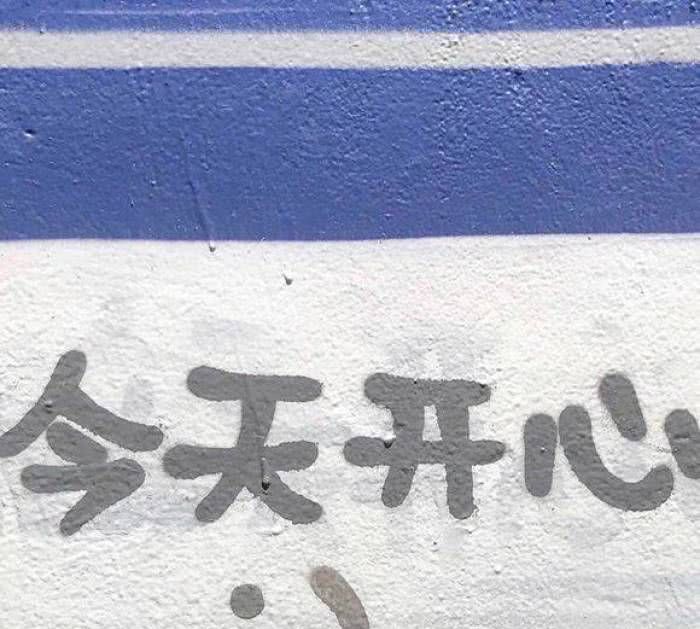 今天开心